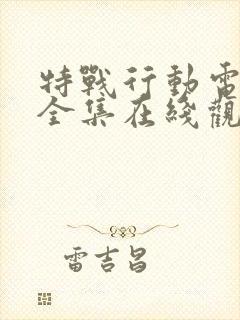 特戰行動電
全集在綫觀
雷吉昌